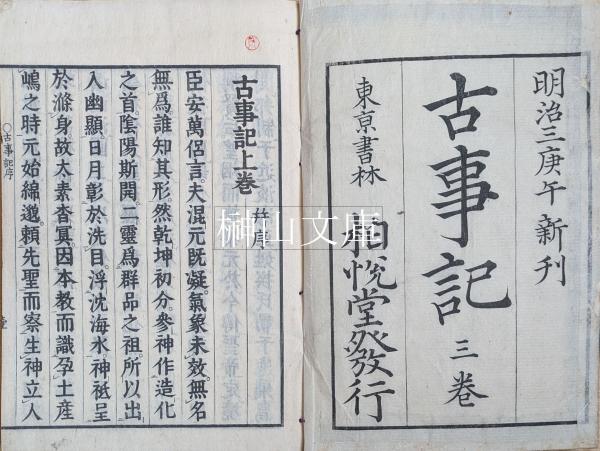 明治三庚午新刊
古事記 三巻
東京書林 柏悦堂發行
榊山文庫
古事記上巻 并序
臣安萬侶言。夫混元既凝。氣象未效。無名
無爲誰知其形。然乾坤初分。參神作造化
之首。陰陽斯開二靈爲群品之祖。所以出
入幽顯。日月彰於洗目。浮沈海水。神祇呈
於滌身。故太素杳冥。因本教而識孕土産
嶋之時元始綿邈。賴先聖而察生神立人
○古事記序
壹